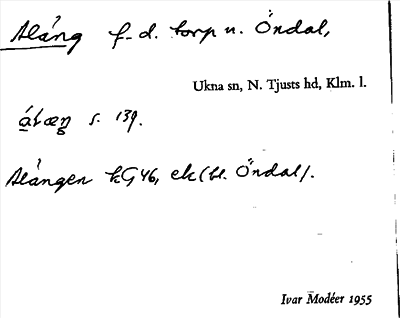 Aläng f.d. torp u. Öndal,
Ukna sn, N. Tjusts hd, Klm. l.
s. 139.
Alängen kG46, ek (bl. Öndal).
Ivar Modéer 1955